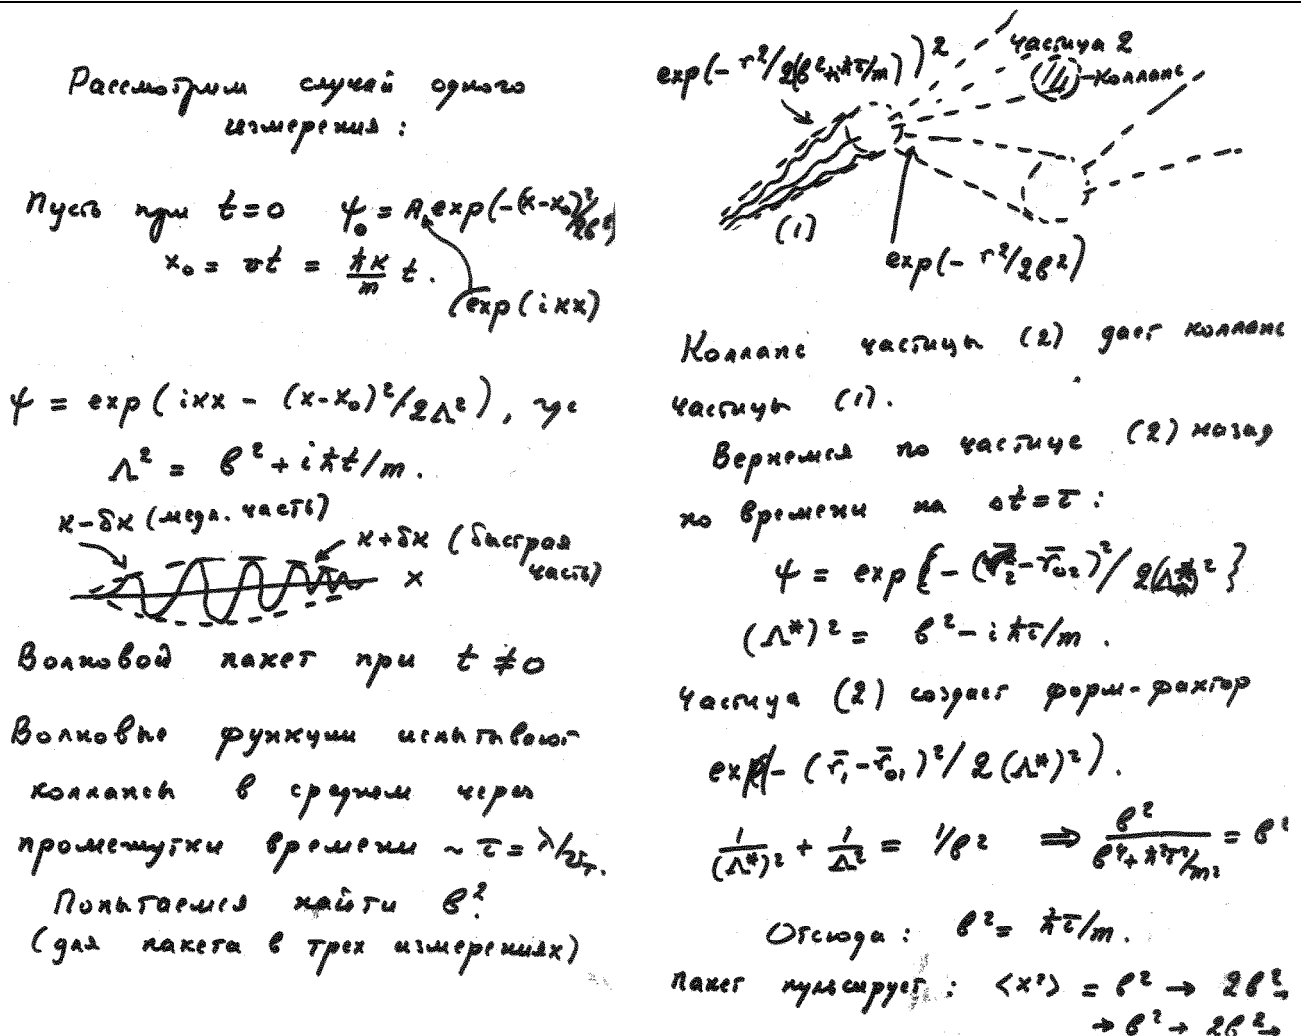 Рассмотрим случай одного
измерения:
Пусть при t=0 ψ₀ = A exp(-(x-x₀)²/2b²)
x₀ = vt = ħk/m t.
(exp(ikx)
ψ = exp(ikx - (x-x₀)²/2Λ²), где
Λ² = b² + iħt/m.
k-δk (медл. часть)
k+δk (быстрая
часть)
x
Волновой пакет при t ≠ 0
Волновые функции испытывают
коллапсы в среднем через
промежутки времени ~ τ = λ/v_T.
Попытаемся найти b².
(для пакета в трех измерениях)
exp(- r²/2(b²+iħτ/m))²
частица 2
коллапс
(1)
exp(- r²/2b²)
Коллапс частицы (2) дает коллапс
частицы (1).
Вернемся по частице (2) назад
по времени на Δt = τ:
ψ = exp{-(r̄₂-r̄₀₂)²/2(Λ*)²}
(Λ*)² = b² - iħτ/m.
Частица (2) создает форм-фактор
exp(-(r̄₁-r̄₀₁)²/2(Λ*)²).
1/(Λ*)² + 1/Λ² = 1/b² ⇒ b²/(b⁴+ħ²τ²/m²) = b²
Отсюда: b² = ħτ/m.
Пакет пульсирует: ⟨x²⟩ = b² → 2b² →
→ b² → 2b² →